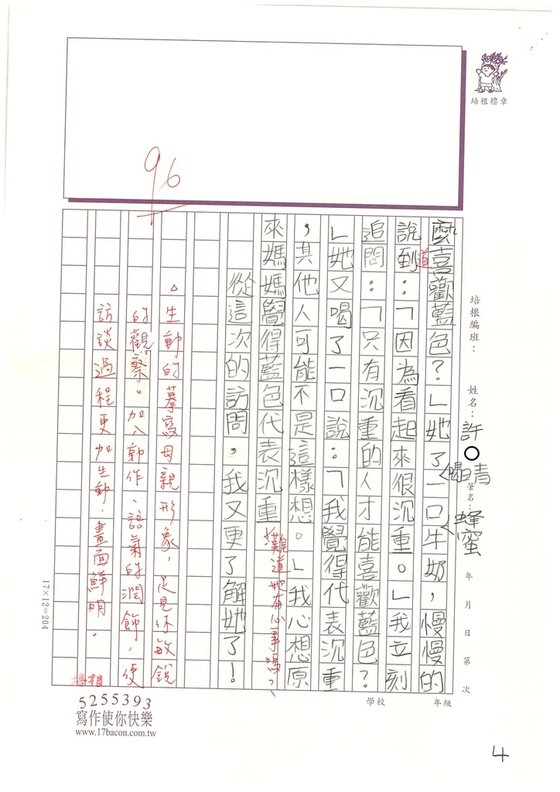 培根標章
培根編班：
姓名：許○青
筆名 蜂蜜
年 月 日 第 次
麼喜歡藍色？」她了一口牛奶，慢慢的
喝
說到：「因為看起來很沉重。」我立刻
道
追問：「只有沉重的人才能喜歡藍色？
」她又喝了一口說：「我覺得代表沉重
，其他人可能不是這樣想。」我心想原
來媽媽覺得藍色代表沉重，
難道她有心事嗎？
從這次的訪問，我又更了解她了！
96
△生動的摹寫母親形象，足見你敏銳
的觀察。加入動作、語氣的潤飾，使
訪談過程更加生動，畫面鮮明。
17×12=204
學校 年級
5255393
寫作使你快樂
www.17bacon.com.tw
4